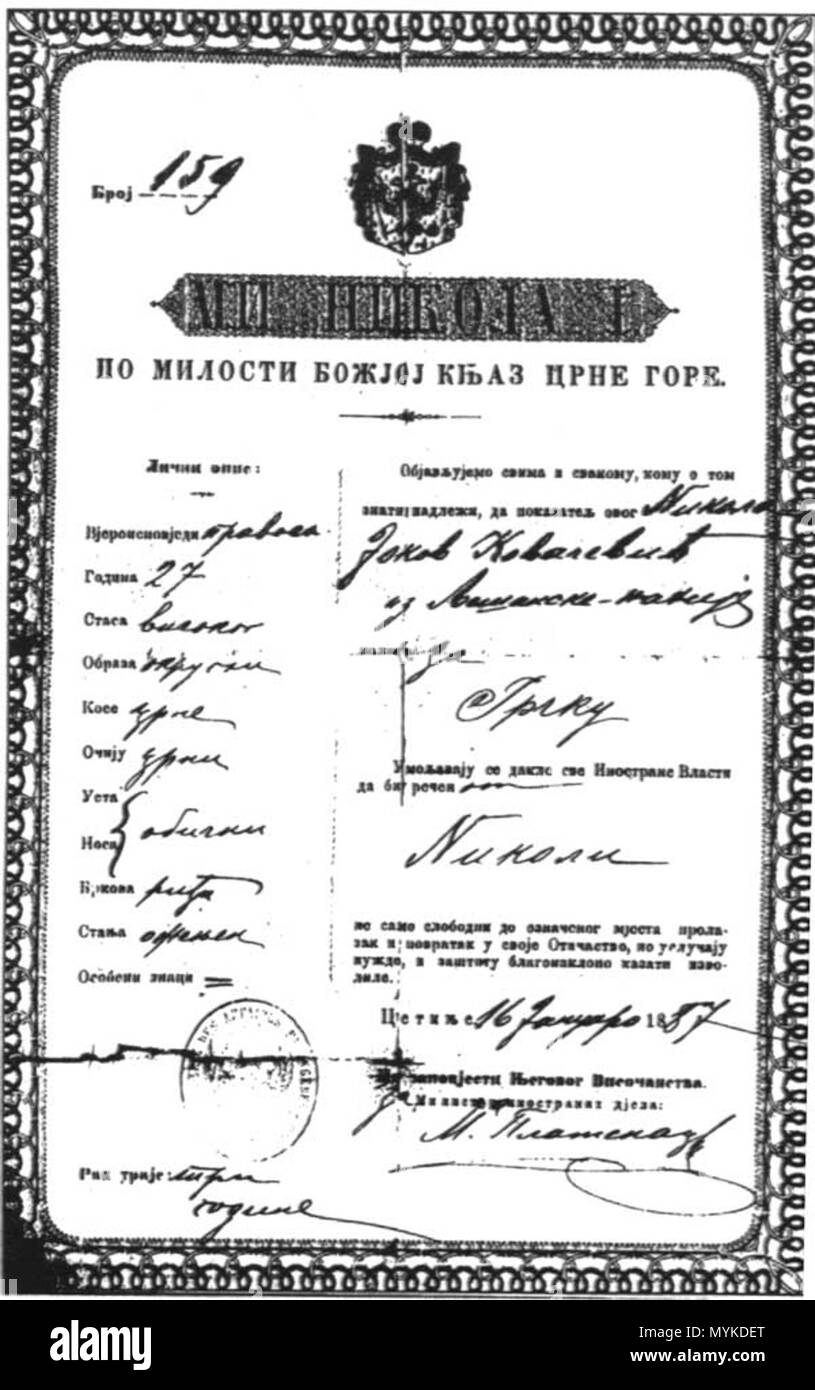 Број 159
МИ НИКОЛА I.
ПО МИЛОСТИ БОЖЈОЈ КЊАЗ ЦРНЕ ГОРЕ.
Лични опис:
Вјероисповједи правосл.
Година 27
Стаса високог
Образа округли
Косе црне
Очију црни
Уста
обични
Носа
Бркова риђа
Стања ожењен
Особени знаци =
Рок траје: три
године
Објављујемо свима и свакому, кому о том
знати надлежи, да показатељ овог Никола
Јоков Ковачевић
из
у
Грчку
Умољавају се дакле све Иностране Власти
да би речен
Николи
не само слободни до означеног мјеста прола-
зак и повратак у своје Отачаство, но у случају
нужде, и заштиту благонаклоно казати изво-
лиле.
Цетиње 16 Јануаро 1887
По заповјести Његовог Височанства.
Министар иностраних дјела:
М.
alamy
Image ID: MYKDET
www.alamy.com